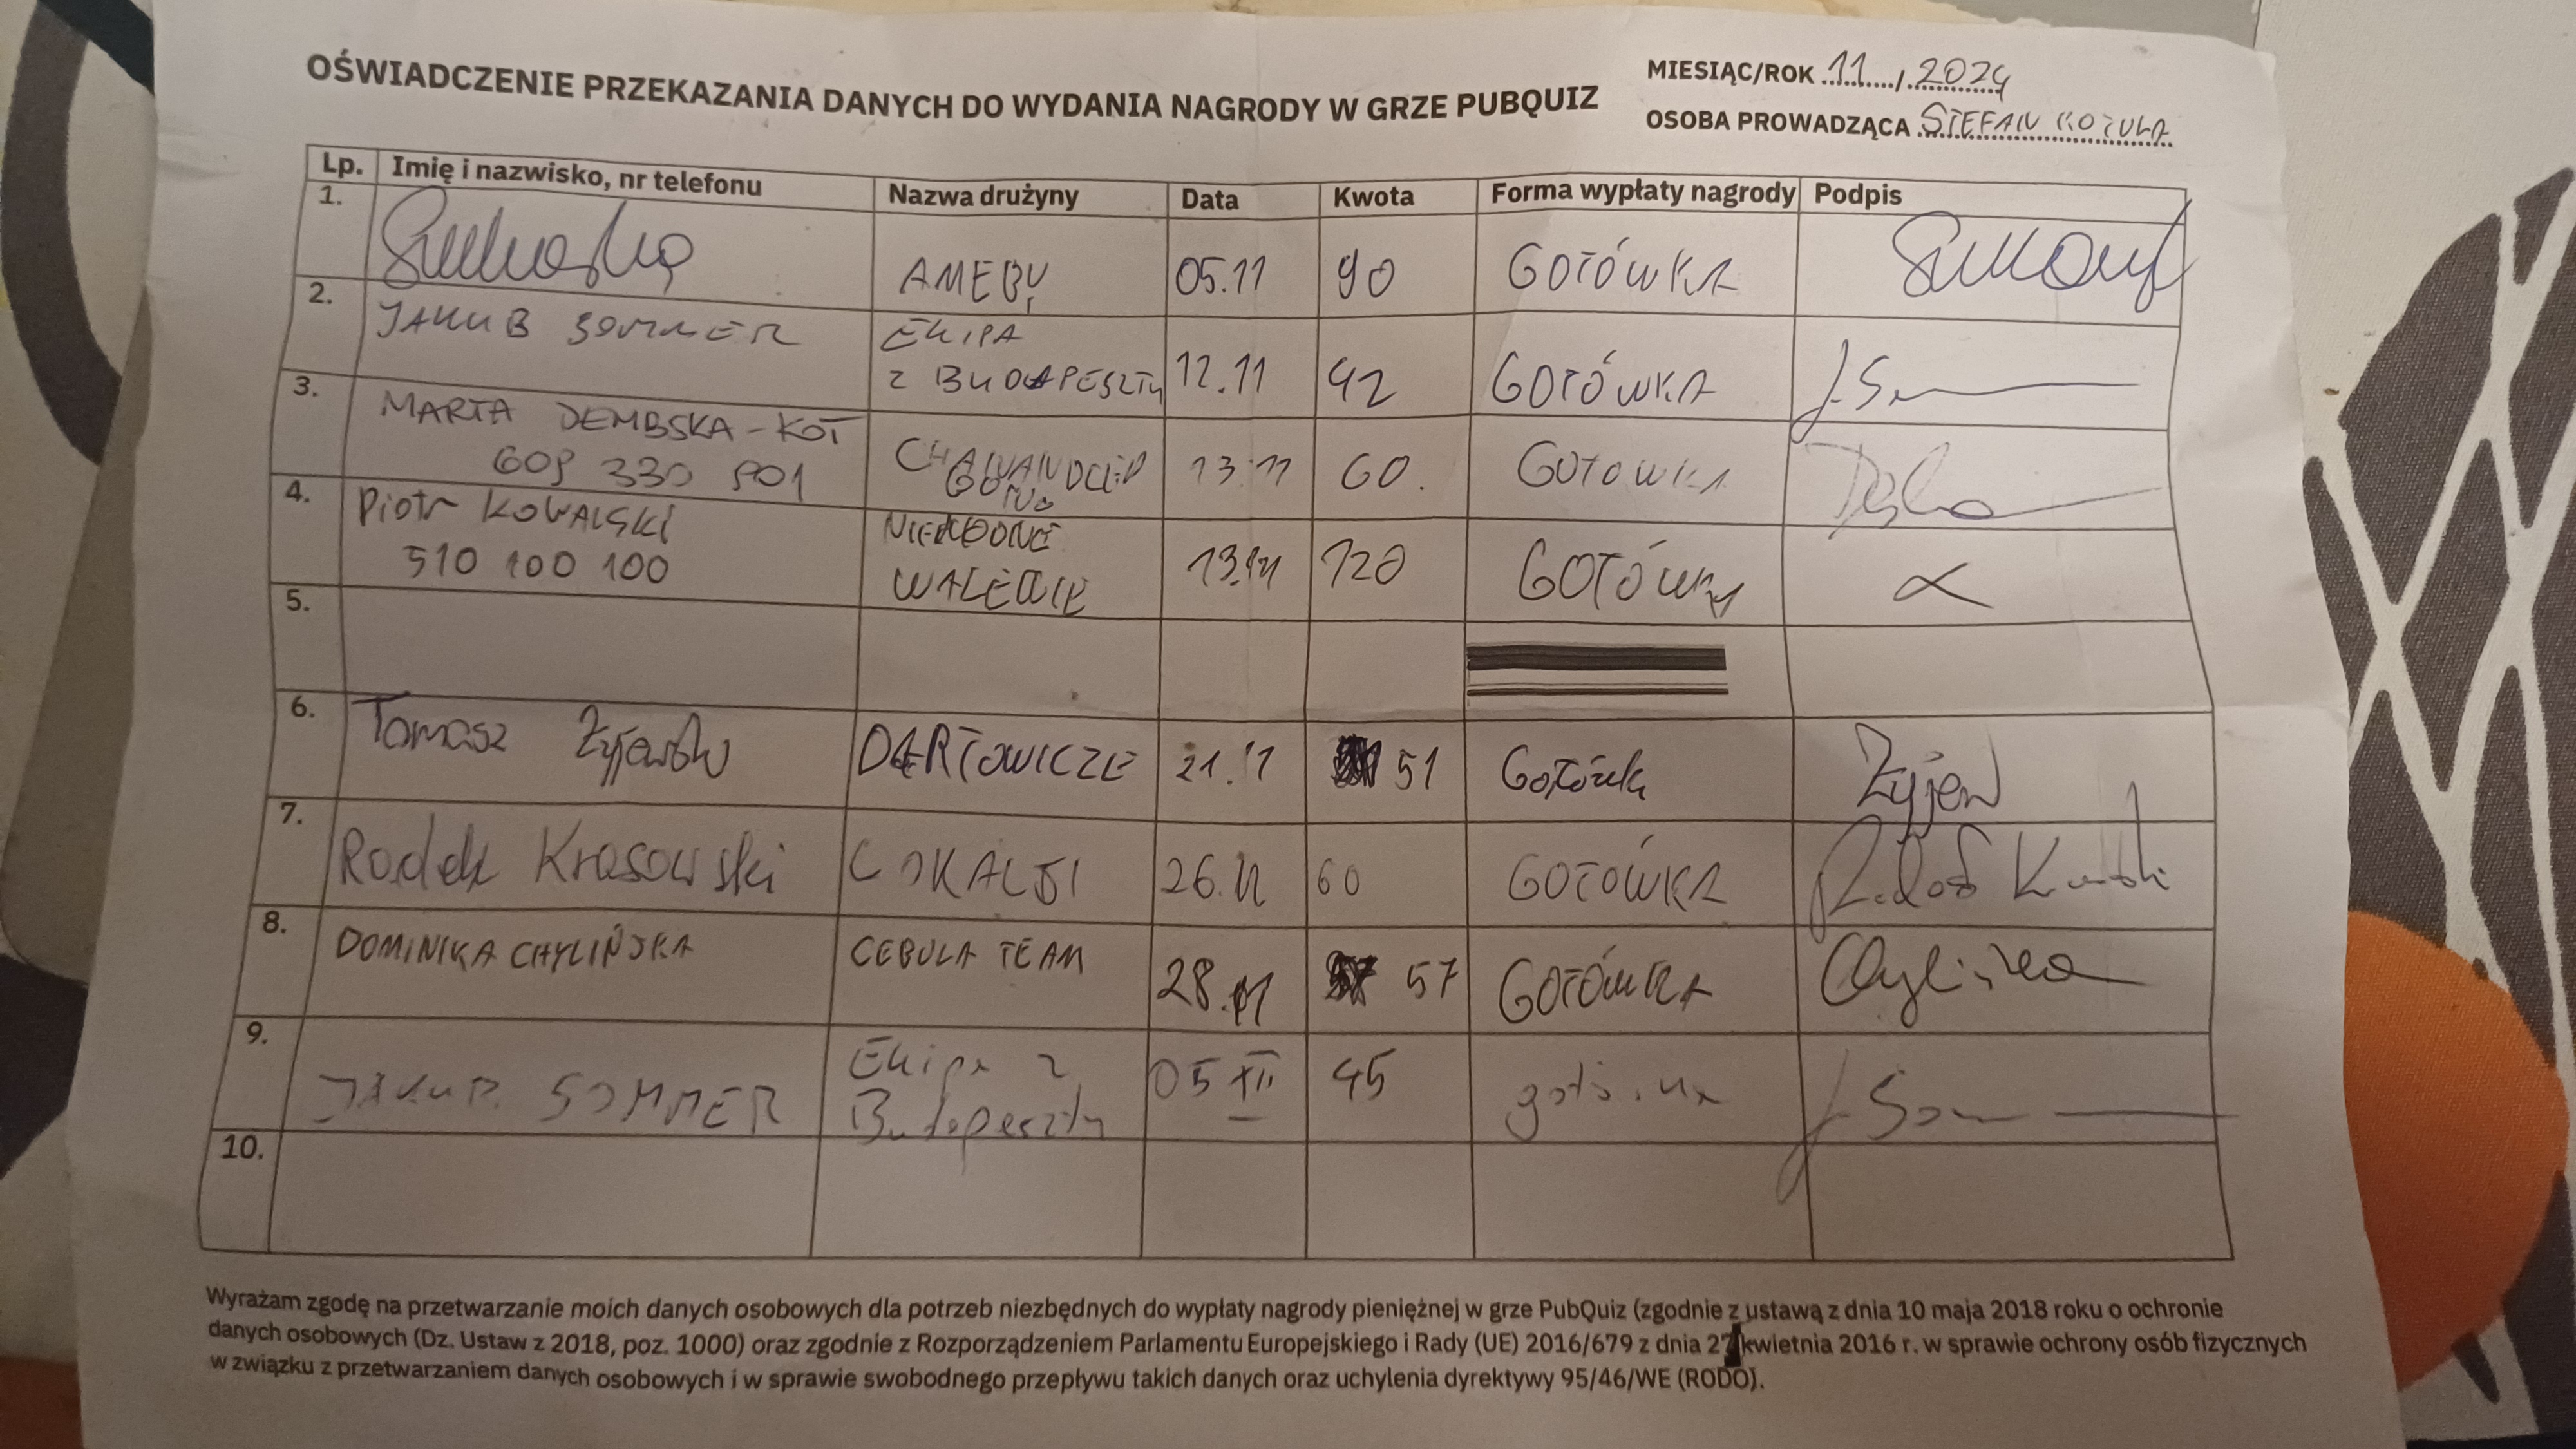 OŚWIADCZENIE PRZEKAZANIA DANYCH DO WYDANIA NAGRODY W GRZE PUBQUIZ
MIESIĄC/ROK 11 / 2024
OSOBA PROWADZĄCA STEFAN
Lp. Imię i nazwisko, nr telefonu Nazwa drużyny Data Kwota Forma wypłaty nagrody Podpis
1. AMEBY 05.11 90 GOTÓWKA
2. JAKUB SOMMER EKIPA
Z BUDAPESZTU 12.11 42 GOTÓWKA J. S
3. MARTA DEMBSKA-KOT
609 330 901 13.11 60. GOTOWKA
4. Piotr KOWALSKI
510 100 100 13.11 120 GOTÓWKA
5.
6. Tomasz Żyjewski DARTOWICZE 21.11 51 Gotówka Żyjew
7. Radek Krasowski LOKALSI 26.11 60 GOTÓWKA
8. DOMINIKA CHYLIŃSKA CEBULA TEAM 28.11 57 GOTÓWKA Chylińska
9. JAKUB SOMMER Ekipa z
Budapesztu 05 XII 45 gotówka J. Som
10.
Wyrażam zgodę na przetwarzanie moich danych osobowych dla potrzeb niezbędnych do wypłaty nagrody pieniężnej w grze PubQuiz (zgodnie z ustawą z dnia 10 maja 2018 roku o ochronie
danych osobowych (Dz. Ustaw z 2018, poz. 1000) oraz zgodnie z Rozporządzeniem Parlamentu Europejskiego i Rady (UE) 2016/679 z dnia 27 kwietnia 2016 r. w sprawie ochrony osób fizycznych
w związku z przetwarzaniem danych osobowych i w sprawie swobodnego przepływu takich danych oraz uchylenia dyrektywy 95/46/WE (RODO).